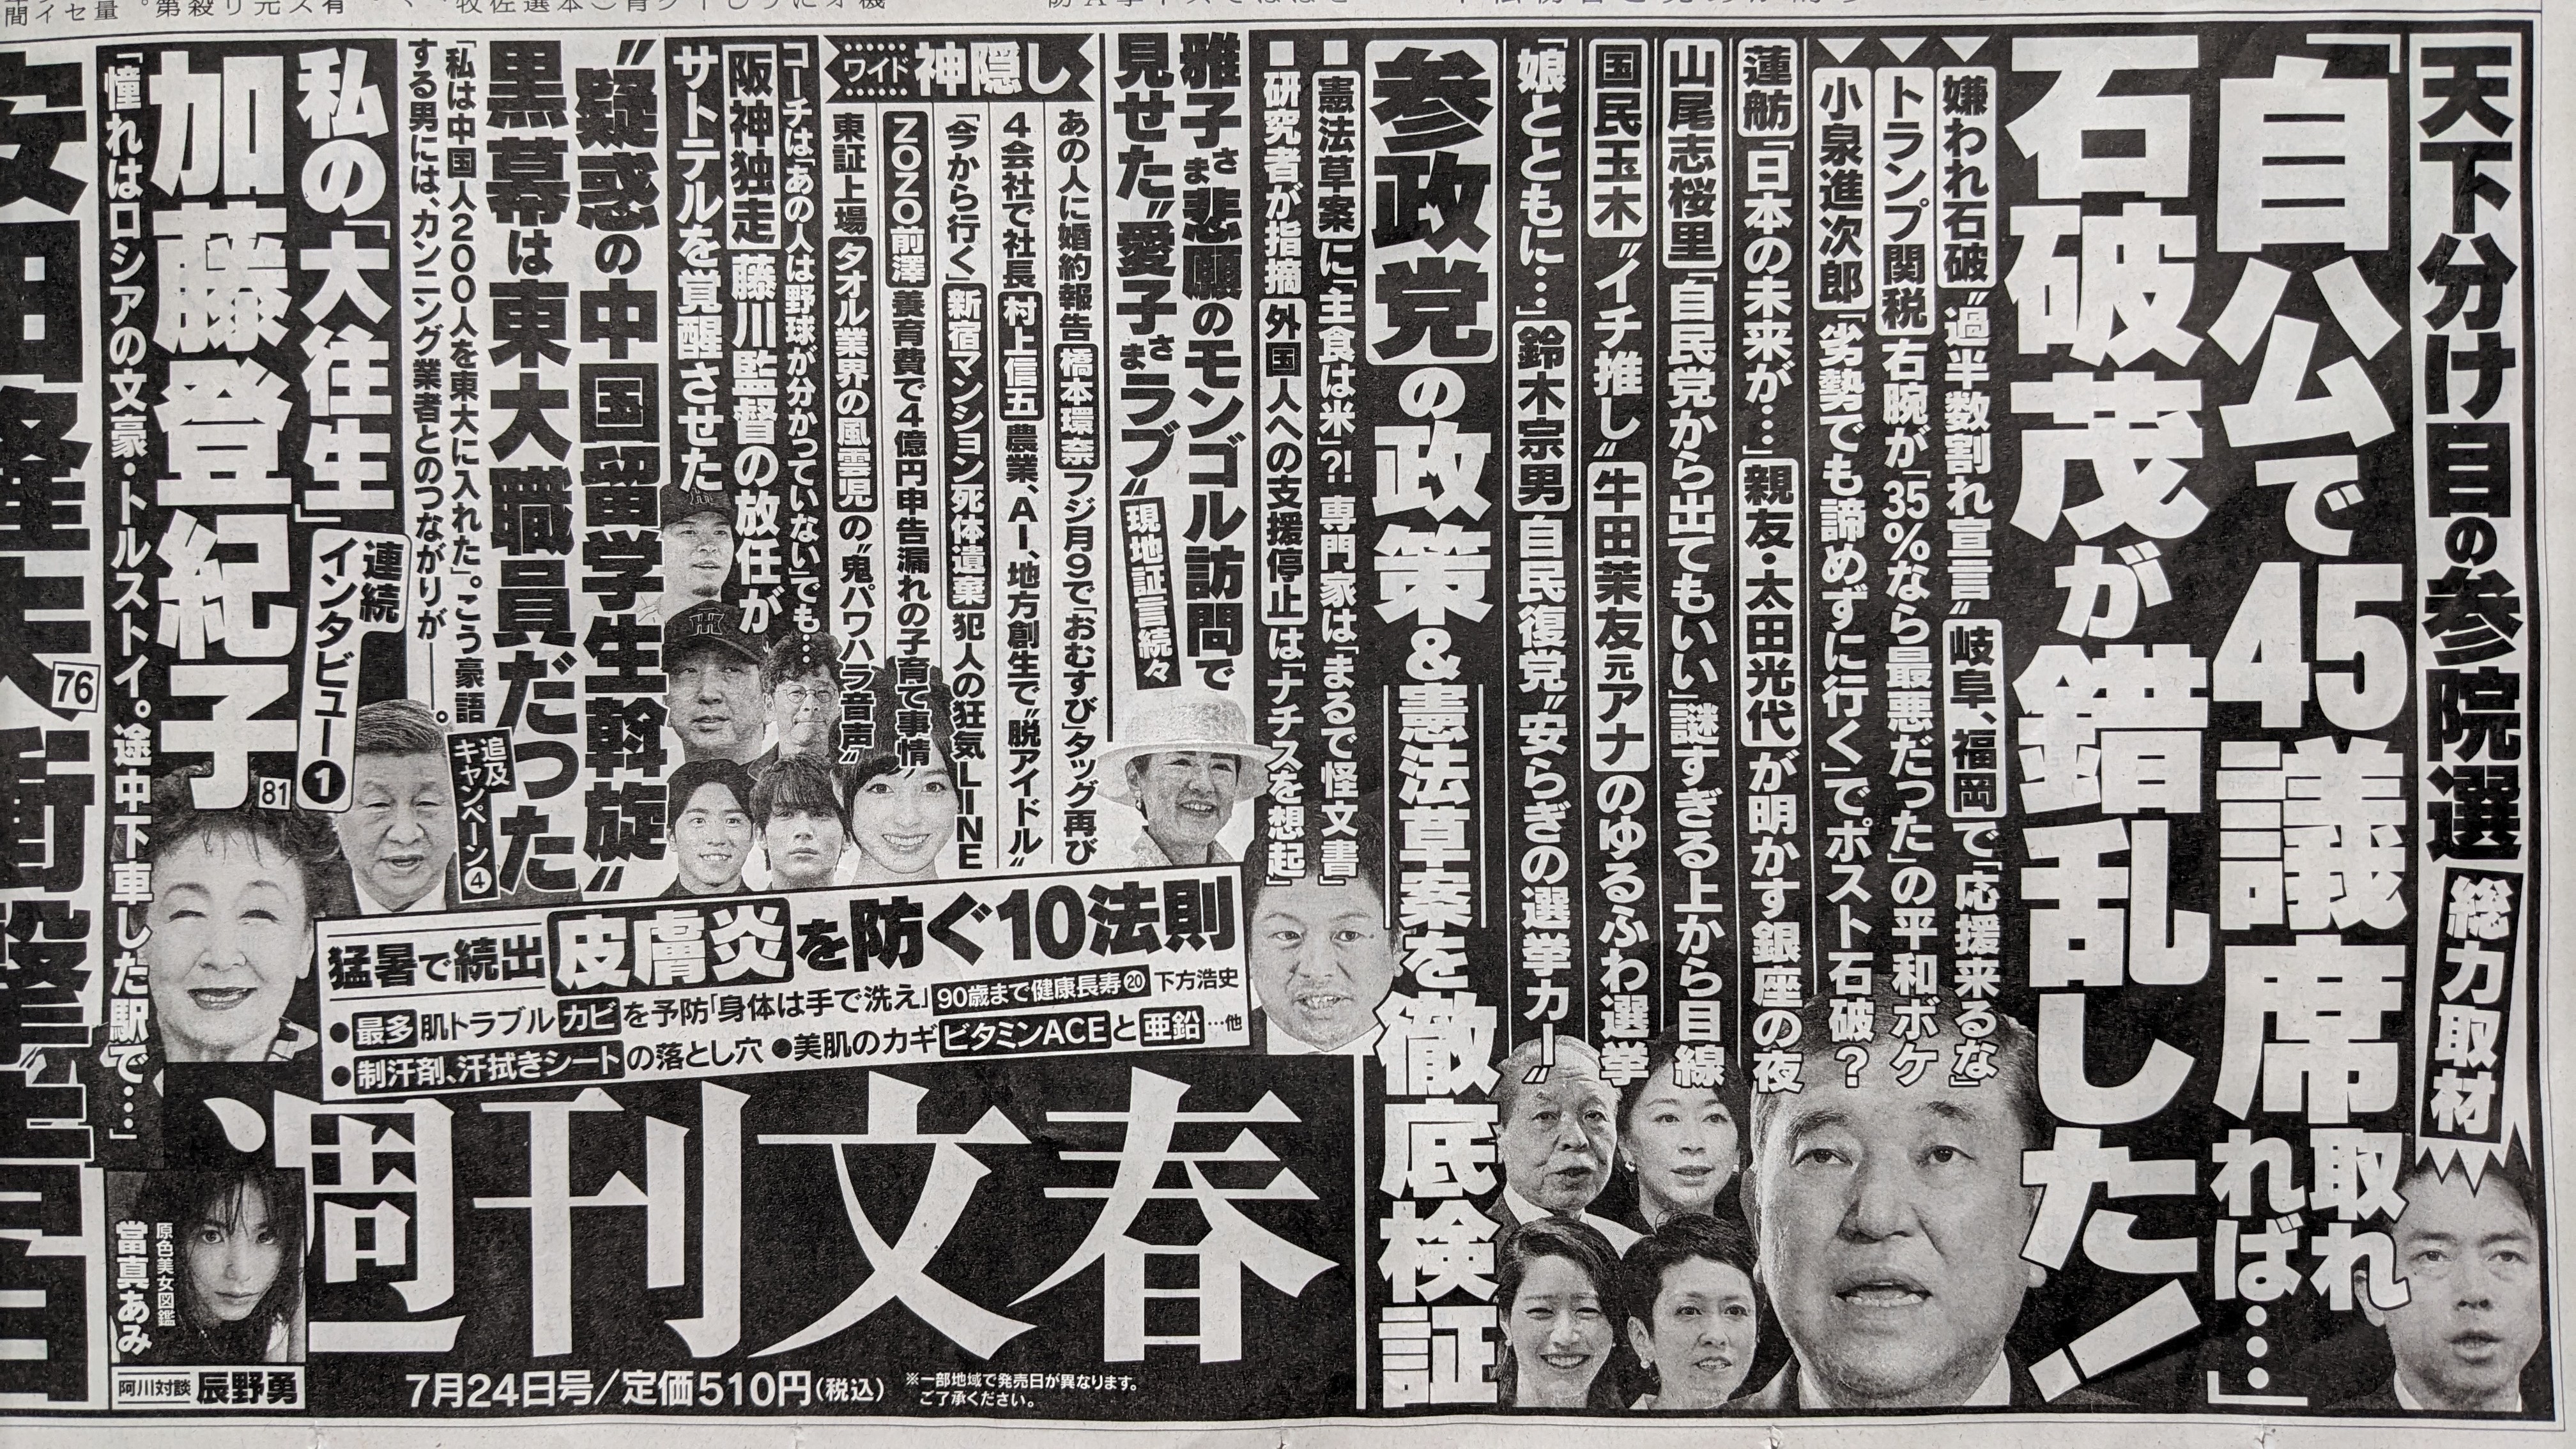 天下分け目の参院選 総力取材
「自公で45議席取れれば……」
石破茂が錯乱した!
▼嫌われ石破“過半数割れ宣言”岐阜、福岡で「応援来るな」
▼トランプ関税 右腕が「35%なら最悪だった」の平和ボケ
▼小泉進次郎「劣勢でも諦めずに行く」でポスト石破?
蓮舫「日本の未来が…」親友・太田光代が明かす銀座の夜
山尾志桜里「自民党から出てもいい」謎すぎる上から目線
国民玉木“イチ推し”牛田茉友元アナのゆるふわ選挙
「娘とともに…」鈴木宗男 自民復党“安らぎの選挙カー”
参政党の政策&憲法草案を徹底検証
■憲法草案に「主食は米」?!専門家は「まるで怪文書」
■研究者が指摘 外国人への支援停止は「ナチスを想起」
雅子さま悲願のモンゴル訪問で
見せた“愛子さまラブ”現地証言続々
ワイド 神隠し
あの人に婚約報告 橋本環奈 フジ月9で「おむすび」タッグ再び
4会社で社長 村上信五 農業、AI、地方創生で“脱アイドル”
「今から行く」新宿マンション死体遺棄 犯人の狂気LINE
ZOZO前澤 養育費で4億円申告漏れの子育て事情
東証上場 タオル業界の風雲児の“鬼パワハラ音声”
コーチは「あの人は野球が分かっていない」でも…
阪神独走 藤川監督の放任が
サトテルを覚醒させた
“疑惑の中国留学生斡旋”
黒幕は東大職員だった
追及キャンペーン④
「私は中国人200人を東大に入れた」。こう豪語
する男には、カンニング業者とのつながりが――。
私の「大往生」
連続インタビュー❶
加藤登紀子 81
「憧れはロシアの文豪・トルストイ。途中下車した駅で…」
76
猛暑で続出 皮膚炎を防ぐ10法則
●最多肌トラブル カビを予防「身体は手で洗え」90歳まで健康長寿⑳ 下方浩史
●制汗剤、汗拭きシートの落とし穴 ●美肌のカギ ビタミンACEと亜鉛…他
週刊文春
7月24日号/定価510円(税込)
※一部地域で発売日が異なります。
ご了承ください。
原色美女図鑑
當真あみ
阿川対談 辰野勇